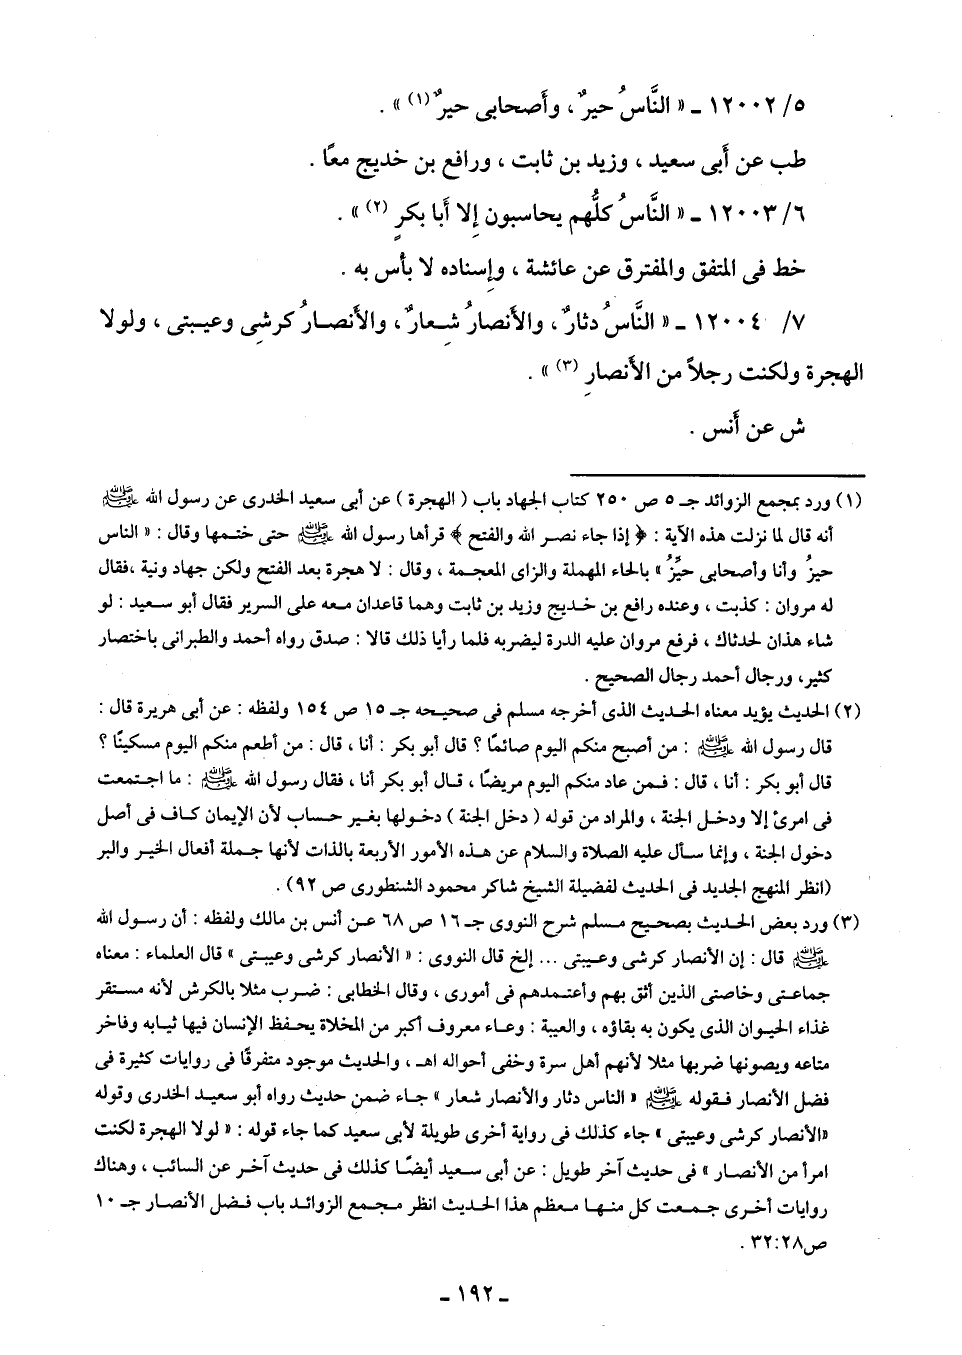 ٥/ ١٢٠٠٢ ـ « النَّاسُ حيرٌ ، وأَصحابى حيرٌ (١) » .
طب عن أَبى سعيد ، وزيد بن ثابت ، ورافع بن خديج معًا .
٦/ ١٢٠٠٣ ـ « النَّاسُ كلُّهم يحاسبون إِلا أَبا بكرٍ (٢) » .
خط فى المتفق والمفترق عن عائشة ، وإِسناده لا بأْس به .
٧/ ١٢٠٠٤ ـ « النَّاسُ دثارٌ ، والأَنصارُ شِعارٌ ، والأَنصارُ كرشِى وعيبتى ، ولولا
الهجرة ولكنت رجلاً من الأَنصارِ (٣) » .
ش عن أَنس .
(١) ورد بمجمع الزوائد جـ ٥ ص ٢٥٠ كتاب الجهاد باب ( الهجرة ) عن أبى سعيد الخدرى عن رسول الله ﷺ
أنه قال لما نزلت هذه الآية : ﴿ إذا جاء نصر الله والفتح ﴾ قرأها رسول الله ﷺ حتى ختمها وقال : « الناس
حيزُ وأنا وأصحابى حيِّزُ » بالحاء المهملة والزاى المعجمة ، وقال : لا هجرة بعد الفتح ولكن جهاد ونية ،فقال
له مروان : كذبت ، وعنده رافع بن خديج وزيد بن ثابت وهما قاعدان معه على السرير فقال أبو سعيد : لو
شاء هذان لحدثاك ، فرفع مروان عليه الدرة ليضربه فلما رأيا ذلك قالا : صدق رواه أحمد والطبرانى باختصار
كثير، ورجال أحمد رجال الصحيح .
(٢) الحديث يؤيد معناه الحديث الذى أخرجه مسلم فى صحيحه جـ ١٥ ص ١٥٤ ولفظه : عن أبى هريرة قال :
قال رسول الله ﷺ : من أصبح منكم اليوم صائمًا ؟ قال أبو بكر : أنا ، قال : من أطعم منكم اليوم مسكينًا ؟
قال أبو بكر : أنا ، قال : فمن عاد منكم اليوم مريضًا ، قال أبو بكر أنا ، فقال رسول الله ﷺ : ما اجتمعت
فى امرئ إلا ودخل الجنة ، والمراد من قوله ( دخل الجنة ) دخولها بغير حساب لأن الإيمان كاف فى أصل
دخول الجنة ، وإنما سأل عليه الصلاة والسلام عن هذه الأمور الأربعة بالذات لأنها جملة أفعال الخير والبر
(انظر المنهج الجديد فى الحديث لفضيلة الشيخ شاكر محمود الشنطورى ص ٩٢) .
(٣) ورد بعض الحديث بصحيح مسلم شرح النووى جـ ١٦ ص ٦٨ عن أنس بن مالك ولفظه : أن رسول الله
ﷺ قال : إن الأنصار كرشى وعيبتى ... إلخ قال النووى : « الأنصار كرشى وعيبتى » قال العلماء : معناه
جماعتى وخاصتى الذين أثق بهم وأعتمدهم فى أمورى ، وقال الخطابى : ضرب مثلا بالكرش لأنه مستقر
غذاء الحيوان الذى يكون به بقاؤه ، والعيبة : وعاء معروف أكبر من المخلاة يحفظ الإنسان فيها ثيابه وفاخر
متاعه ويصونها ضربها مثلا لأنهم أهل سرة وخفى أحواله اهـ ، والحديث موجود متفرقًا فى روايات كثيرة فى
فضل الأنصار فقوله ﷺ « الناس دثار والأنصار شعار » جاء ضمن حديث رواه أبو سعيد الخدرى وقوله
«الأنصار كرشى وعيبتى » جاء كذلك فى رواية أخرى طويلة لأبى سعيد كما جاء قوله : « لولا الهجرة لكنت
امرأ من الأنصار » فى حديث آخر طويل : عن أبى سعيد أيضًا كذلك فى حديث آخر عن السائب ، وهناك
روايات أخرى جمعت كل منها معظم هذا الحديث انظر مجمع الزوائد باب فضل الأنصار جـ ١٠
ص٣٢:٢٨ .
ـ ١٩٢ ـ